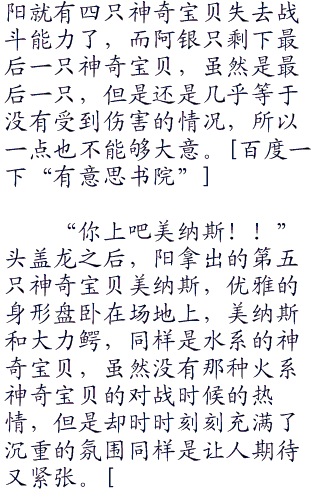 阳就有四只神奇宝贝失去战
斗能力了，而阿银只剩下最
后一只神奇宝贝，虽然是最
后一只，但是还是几乎等于
没有受到伤害的情况，所以
一点也不能够大意。[百度一
下“有意思书院”]
“你上吧美纳斯！！”
头盖龙之后，阳拿出的第五
只神奇宝贝美纳斯，优雅的
身形盘卧在场地上，美纳斯
和大力鳄，同样是水系的神
奇宝贝，虽然没有那种火系
神奇宝贝的对战时候的热
情，但是却时时刻刻充满了
沉重的氛围同样是让人期待
又紧张。[